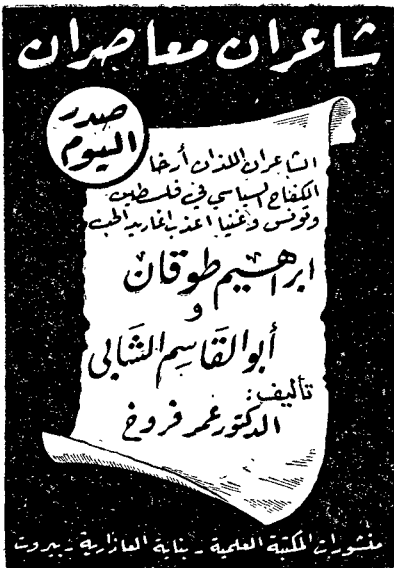 شاعران معاصران
صدر
اليوم
الشاعران اللذان أرخا
الكفاح السياسي في فلسطين
وتونس وغنيا أعذب أغاريد الحب
ابراهيم طوقان
و
أبو القاسم الشابي
تأليف:
الدكتور عمر فروخ
منشورات المكتبة العلمية - بناية العازارية - بيروت